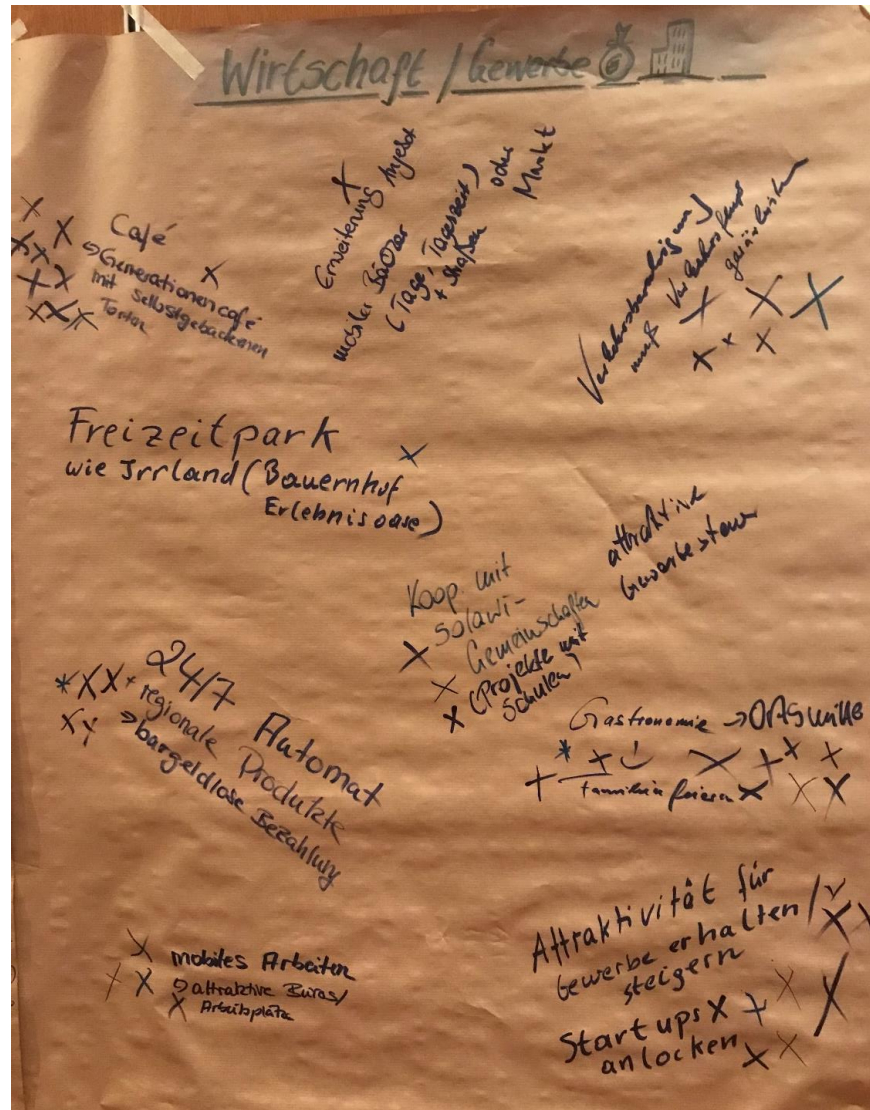 Wirtschaft / Gewerbe
Café
→ Generationencafé
mit selbstgebackenen
Torten
Erweiterung Angebot
mobiler Bäcker
(Tage, Tageszeit) oder
+ Straßen Markt
Verkehrsberuhigung
muß Verkehrsfluss
gewährleisten
Freizeitpark
wie Irrland (Bauernhof
Erlebnisoase)
attraktive
Gewerbesteuer
Koop. mit
Solawi-
Gemeinschaften
(Projekte mit
Schulen)
24/7 Automat
+ regionale Produkte
→ bargeldlose Bezahlung
Gastronomie → Ortsmitte
Familienfeiern
mobiles Arbeiten
→ attraktive Büros/
Arbeitsplätze
Attraktivität für
Gewerbe erhalten /
steigern
Start ups
anlocken